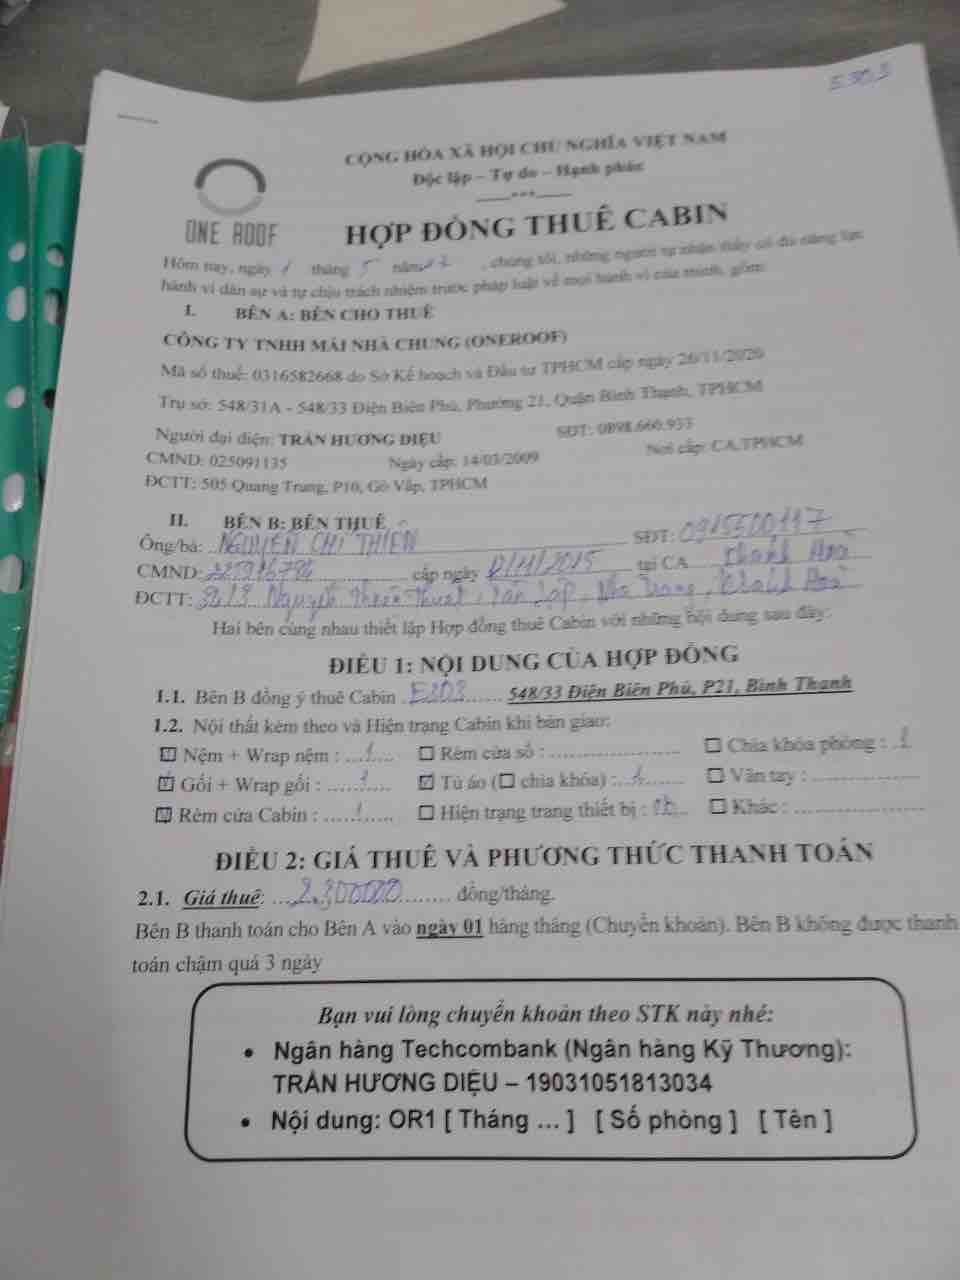 E303
CỘNG HÒA XÃ HỘI CHỦ NGHĨA VIỆT NAM
Độc lập – Tự do – Hạnh phúc
ONE ROOF
HỢP ĐỒNG THUÊ CABIN
Hôm nay, ngày 1 tháng 5 năm , chúng tôi, những người tự nhận thấy có đủ năng lực
hành vi dân sự và tự chịu trách nhiệm trước pháp luật về mọi hành vi của mình, gồm:
I. BÊN A: BÊN CHO THUÊ
CÔNG TY TNHH MÁI NHÀ CHUNG (ONEROOF)
Mã số thuế: 0316582668 do Sở Kế hoạch và Đầu tư TPHCM cấp ngày 26/11/2020
Trụ sở: 548/31A - 548/33 Điện Biên Phủ, Phường 21, Quận Bình Thạnh, TPHCM
Người đại diện: TRẦN HƯƠNG DIỆU SĐT: 0898.660.933
CMND: 025091135 Ngày cấp: 14/03/2009 Nơi cấp: CA.TPHCM
ĐCTT: 505 Quang Trung, P10, Gò Vấp, TPHCM
II. BÊN B: BÊN THUÊ
Ông/bà: NGUYỄN CHÍ THIỆN SĐT: 0915500117
CMND: cấp ngày /11/2015 tại CA Khánh Hoà
ĐCTT: Nguyễn Thiện Thuật, Tân Lập, Nha Trang, Khánh Hoà
Hai bên cùng nhau thiết lập Hợp đồng thuê Cabin với những nội dung sau đây:
ĐIỀU 1: NỘI DUNG CỦA HỢP ĐỒNG
1.1. Bên B đồng ý thuê Cabin E303 548/33 Điện Biên Phủ, P21, Bình Thạnh
1.2. Nội thất kèm theo và Hiện trạng Cabin khi bàn giao:
Nệm + Wrap nệm : 1 Rèm cửa sổ : Chìa khóa phòng : 1
Gối + Wrap gối : 1 Tủ áo ( chìa khóa) : 1 Vân tay :
Rèm cửa Cabin : 1 Hiện trạng trang thiết bị : Khác :
ĐIỀU 2: GIÁ THUÊ VÀ PHƯƠNG THỨC THANH TOÁN
2.1. Giá thuê: 2.300000 đồng/tháng.
Bên B thanh toán cho Bên A vào ngày 01 hàng tháng (Chuyển khoản). Bên B không được thanh
toán chậm quá 3 ngày
Bạn vui lòng chuyển khoản theo STK này nhé:
• Ngân hàng Techcombank (Ngân hàng Kỹ Thương):
TRẦN HƯƠNG DIỆU – 19031051813034
• Nội dung: OR1 [ Tháng ... ] [ Số phòng ] [ Tên ]